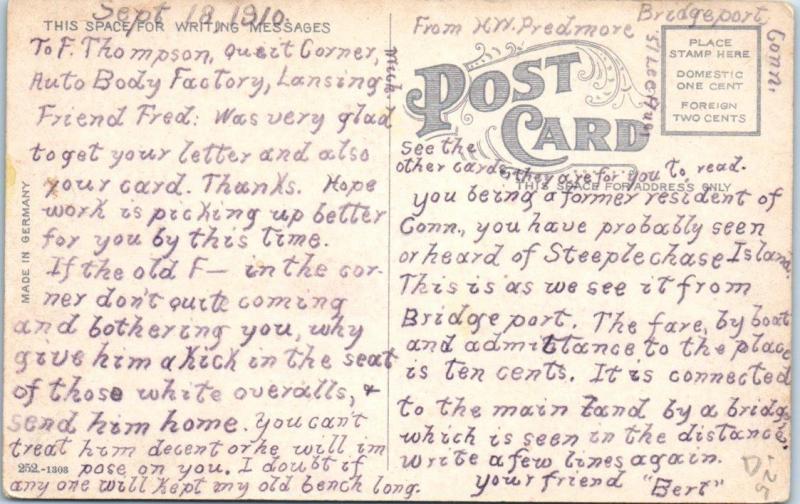 Sept 18 1910.
THIS SPACE FOR WRITING MESSAGES
To F. Thompson, Queit Corner,
Auto Body Factory, Lansing
Mich.
Friend Fred: Was very glad
to get your letter and also
your card. Thanks. Hope
work is picking up better
for you by this time.
If the old F— in the cor-
ner don't quit coming
and bothering you, why
give him a kick in the seat
of those white overalls, +
send him home. You can't
treat him decent or he will im
pose on you. I doubt if
any one will kept my old bench long.
252-1308
MADE IN GERMANY
From H.W. Predmore
Bridgeport,
Conn.
51 Lee Ave
POST
CARD
PLACE
STAMP HERE
DOMESTIC
ONE CENT
FOREIGN
TWO CENTS
See the
other cards, they are for you to read.
THIS SPACE FOR ADDRESS ONLY
you being a former resident of
Conn., you have probably seen
or heard of Steeplechase Island.
This is as we see it from
Bridgeport. The fare, by boat
and admittance to the place
is ten cents. It is connected
to the main land by a bridge
which is seen in the distance.
Write a few lines again.
your friend "Bert"